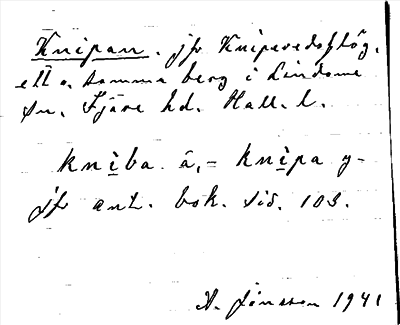 Knipan. jfr Knipevedshög,
ett o. samma berg i Lindome
sn. Fjäre hd. Hall. l.
kniba â, = knipa y-
jfr ant. bok. sid. 103.
A. Jonsson 1941